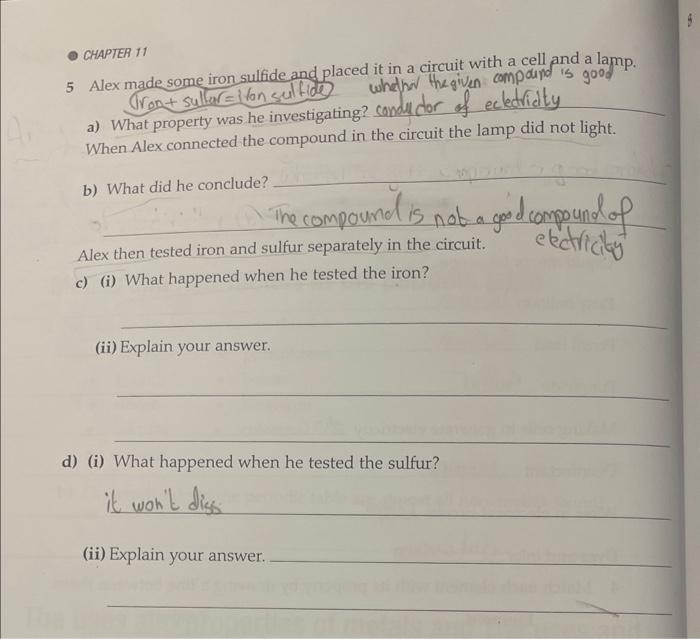 CHAPTER 11
5 Alex made some iron sulfide and placed it in a circuit with a cell and a lamp.
(Iron + sulfar = iron sulfide) whether the given compound is good
a) What property was he investigating? conductor of eclectricity
When Alex connected the compound in the circuit the lamp did not light.
b) What did he conclude?
The compound is not a good compound of
electricity
Alex then tested iron and sulfur separately in the circuit.
c) (i) What happened when he tested the iron?
(ii) Explain your answer.
d) (i) What happened when he tested the sulfur?
it won't diss
(ii) Explain your answer.